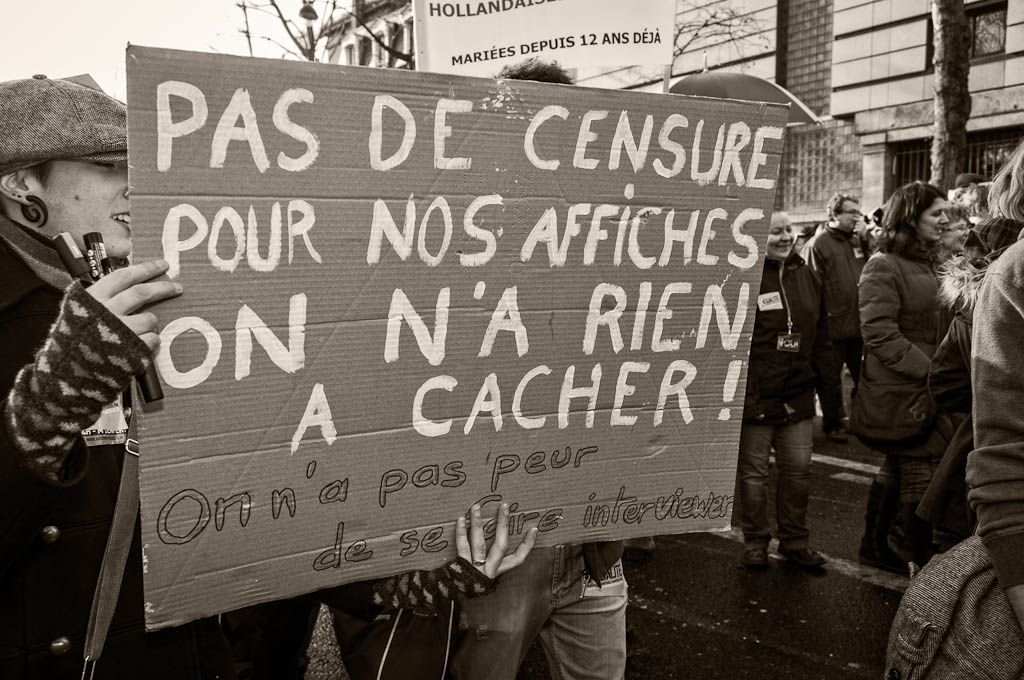 HOLLANDAISE
MARIÉES DEPUIS 12 ANS DÉJÀ
PAS DE CENSURE
POUR NOS AFFICHES
ON N'A RIEN
A CACHER !
On n'a pas peur
de se faire interviewer